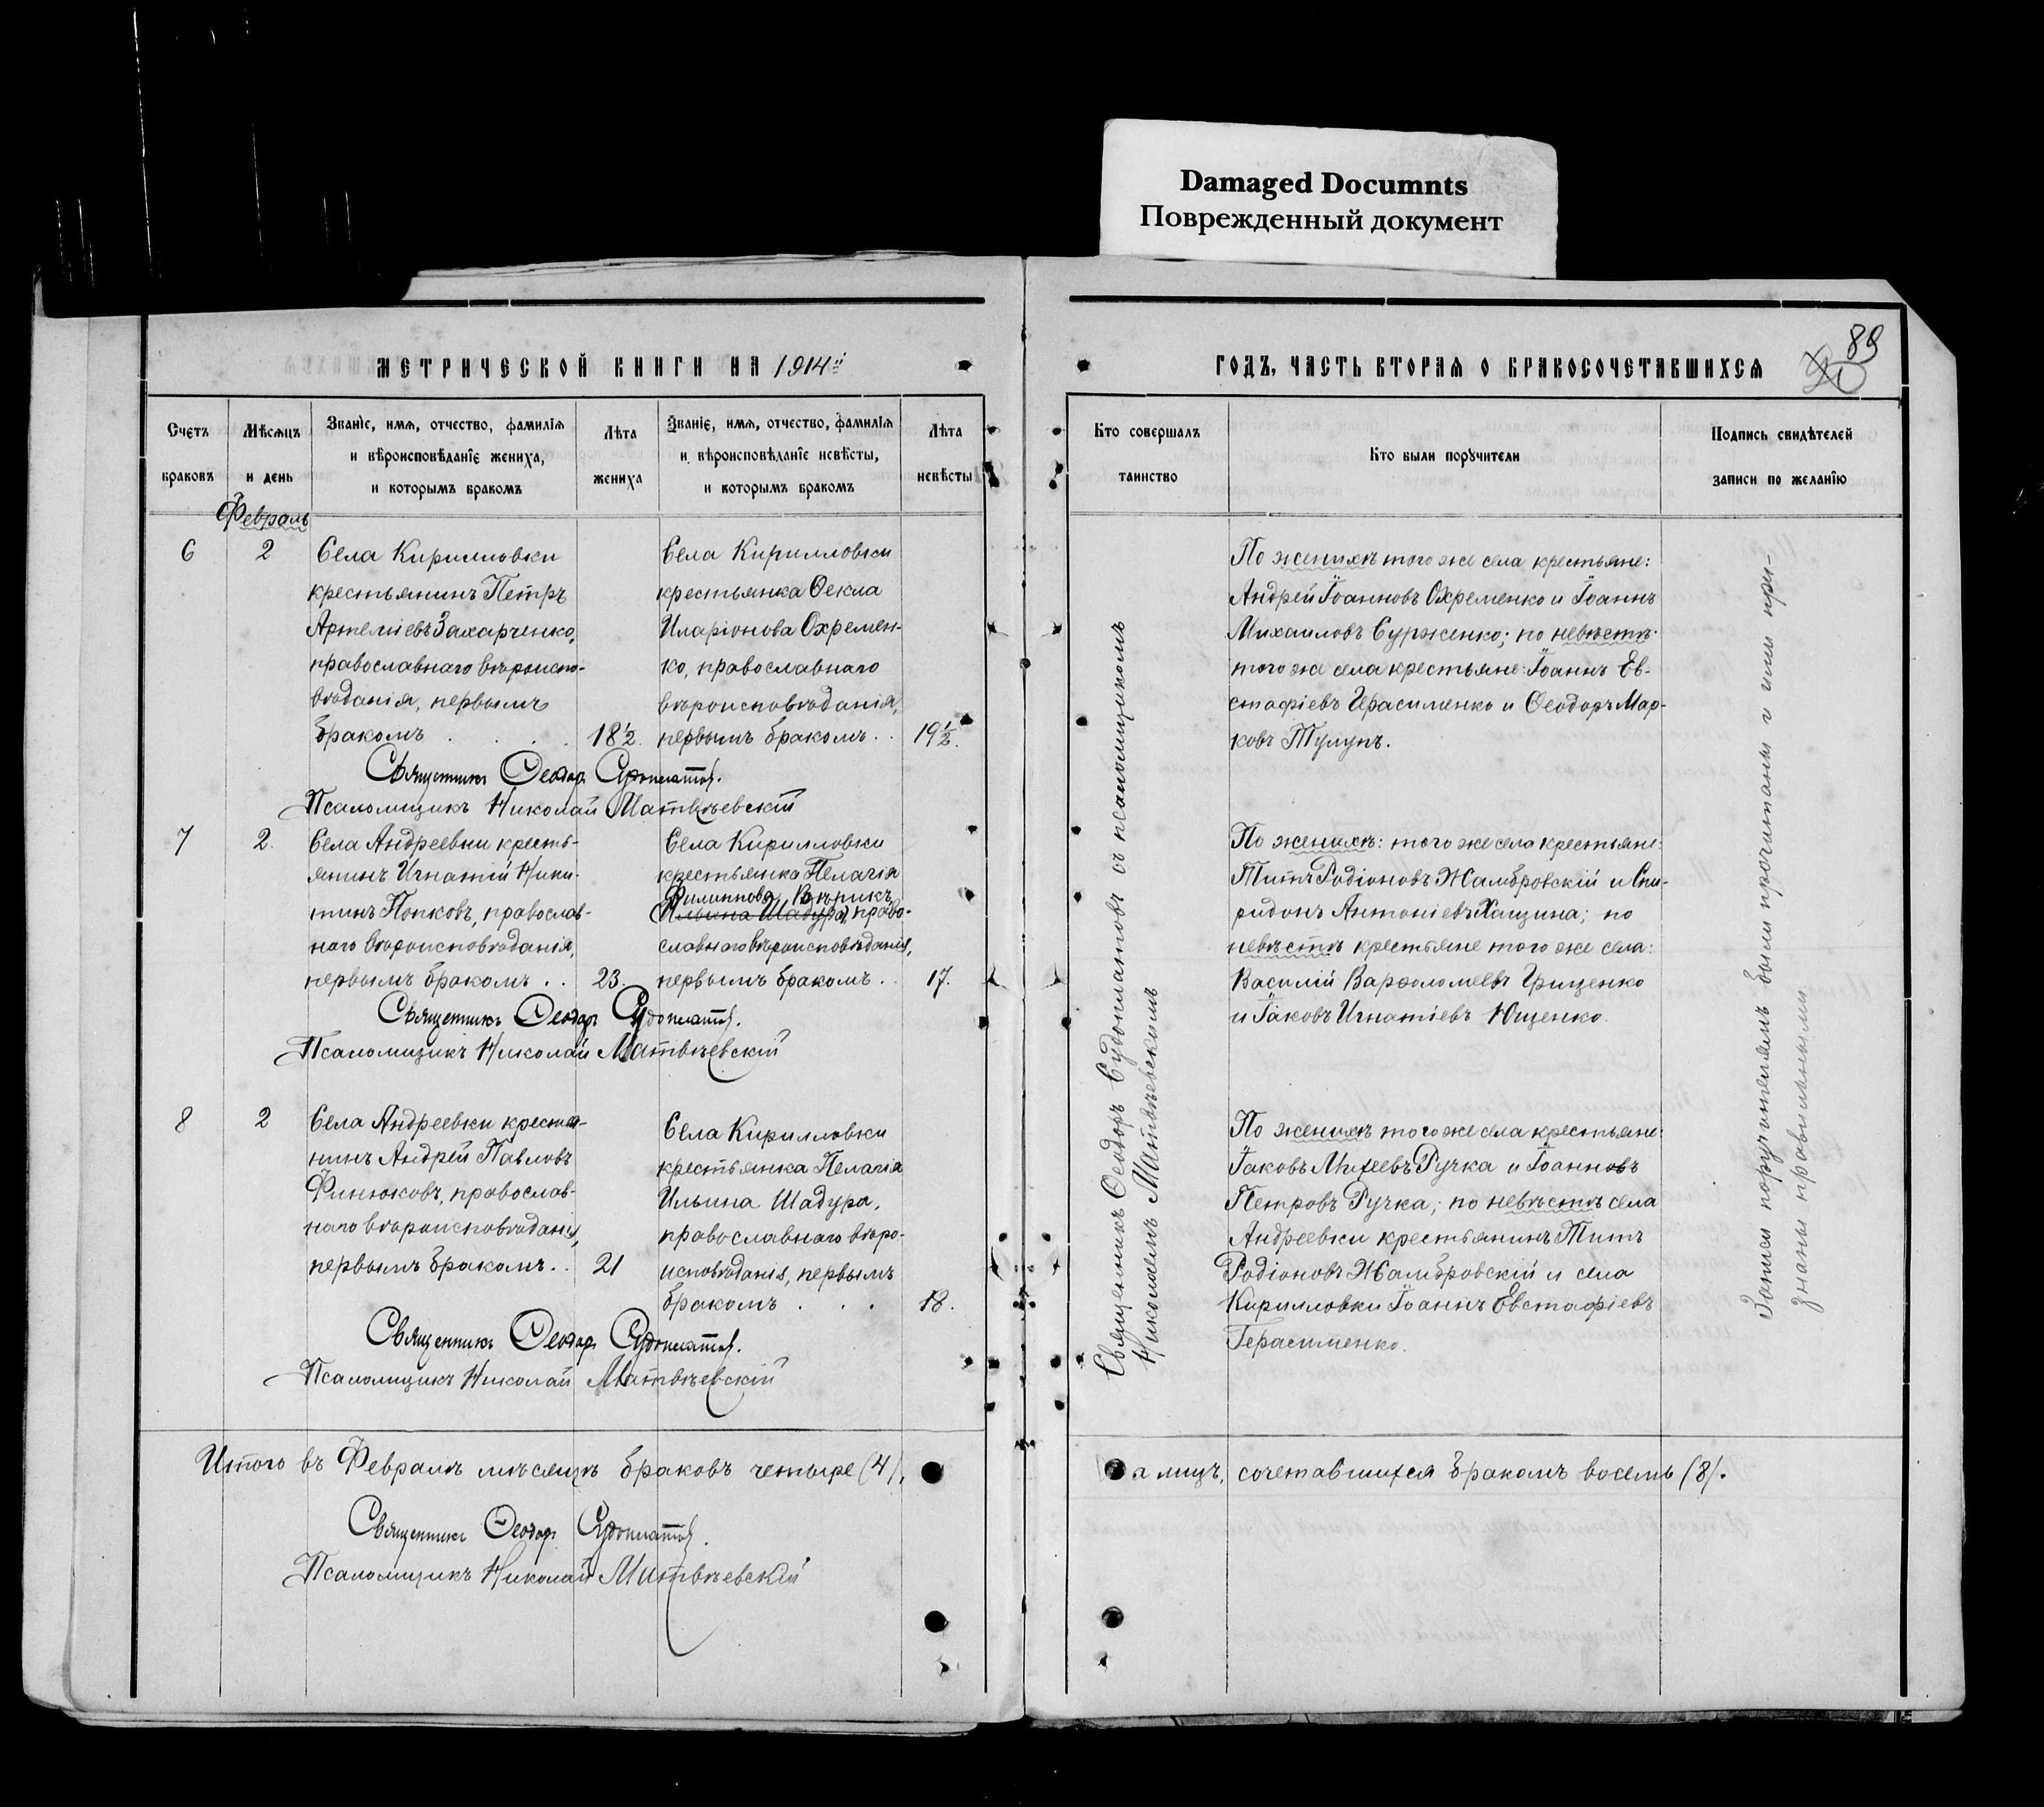 Damaged Documnts
Поврежденный документ
МЕТРИЧЕСКОЙ КНИГИ НА 1914й
ГОДЪ, ЧАСТЬ ВТОРАЯ О БРАКОСОЧЕТАВШИХСЯ
89
Счетъ браковъ
Мѣсяцъ и день
Званіе, имя, отчество, фамилія
и вѣроисповѣданіе жениха,
и которымъ бракомъ
Лѣта жениха
Званіе, имя, отчество, фамилія
и вѣроисповѣданіе невѣсты,
и которымъ бракомъ
Лѣта невѣсты
Кто совершалъ таинство
Кто были поручители
Подпись свидѣтелей
записи по желанію
Февраль
6
2
Села Кирилловки
крестьянинъ Петръ
Артеміевъ Захарченко,
православнаго вѣроиспо-
вѣданія, первымъ
бракомъ . . . .
18½.
Села Кирилловки
крестьянка Ѳекла
Иларіонова Охремен-
ко, православнаго
вѣроисповѣданія,
первымъ бракомъ . .
19½.
Священникъ Ѳеодоръ Судоплатовъ.
Псаломщикъ Николай Матвѣевскій
7
2.
Села Андреевки кресть-
янинъ Игнатій Ники-
тинъ Попковъ, православ-
наго вѣроисповѣданія,
первымъ бракомъ . .
23.
Села Кирилловки
крестьянка Пелагія
Филиппова Вѣрикъ
Ильина Шадура, право-
славнаго вѣроисповѣданія,
первымъ бракомъ . .
17.
Священникъ Ѳеодоръ Судоплатовъ.
Псаломщикъ Николай Матвѣевскій
8
2
Села Андреевки крестья-
нинъ Андрей Павловъ
Финюковъ, православ-
наго вѣроисповѣданія,
первымъ бракомъ . .
21
Села Кирилловки
крестьянка Пелагія
Ильина Шадура,
православнаго вѣро-
исповѣданія, первымъ
бракомъ . . .
18.
Священникъ Ѳеодоръ Судоплатовъ.
Псаломщикъ Николай Матвѣевскій
Итого въ Февралѣ мѣсяцѣ браковъ четыре (4),
Священникъ Ѳеодоръ Судоплатовъ.
Псаломщикъ Николай Матвѣевскій
Священникъ Ѳеодоръ Судоплатовъ съ псаломщикомъ
Николаемъ Матвѣевскимъ
По женихѣ того же села крестьяне:
Андрей Іоанновъ Охременко и Іоаннъ
Михаиловъ Сурженко; по невѣстѣ
того же села крестьяне: Іоаннъ Ев-
стафіевъ Герасименко и Ѳеодоръ Мар-
ковъ Тулупъ.
По женихѣ: того же села крестьяне:
Титъ Родіоновъ Жамбровскій и Спи-
ридонъ Антоніевъ Хащина; по
невѣстѣ крестьяне того же села:
Василій Варѳоломеевъ Грищенко
и Іаковъ Игнатіевъ Ющенко.
По женихѣ того же села крестьяне:
Іаковъ Михеевъ Ручка и Іоанновъ
Петровъ Ручка; по невѣстѣ села
Андреевки крестьянинъ Титъ
Родіоновъ Жамбровскій и села
Кирилловки Іоаннъ Евстафіевъ
Герасименко.
Записи поручителямъ были прочитаны и ими при-
знаны правильными.
а лицъ, сочетавшихся бракомъ восемь (8).